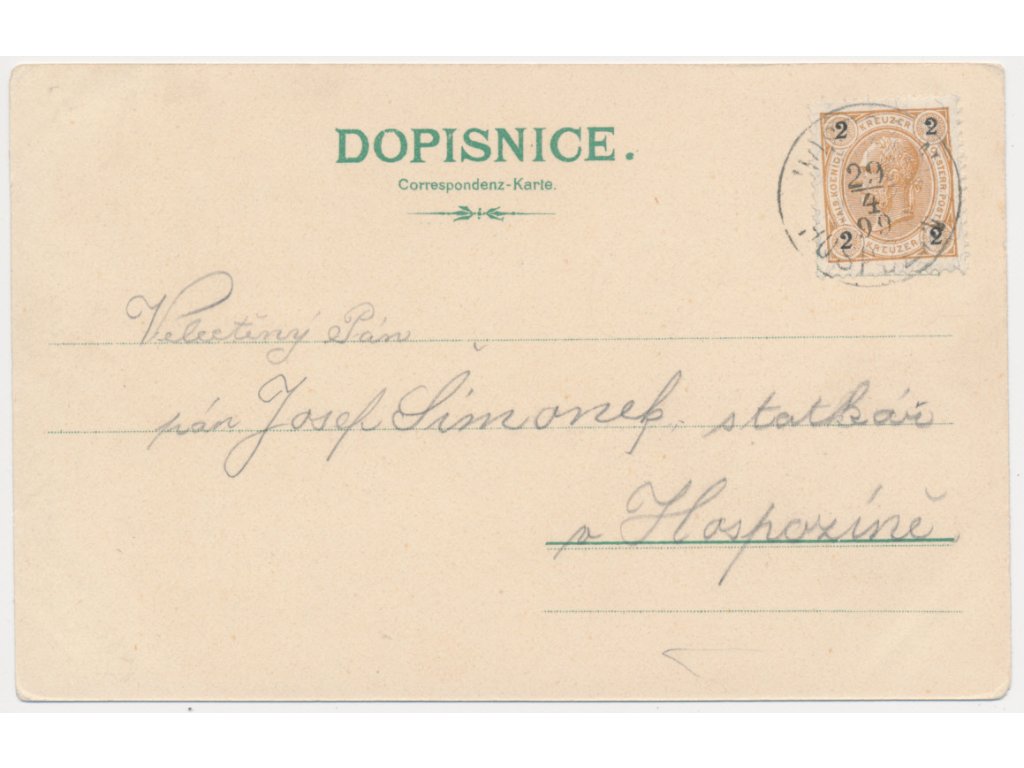 DOPISNICE.
Correspondenz-Karte.
2 KREUZER 2
KAIS. KOENIGL. OESTERR. POST
2 KREUZER 2
29
4
99
Velectěný Pán
pán Josef Šimonek, statkář
v Hospozíně